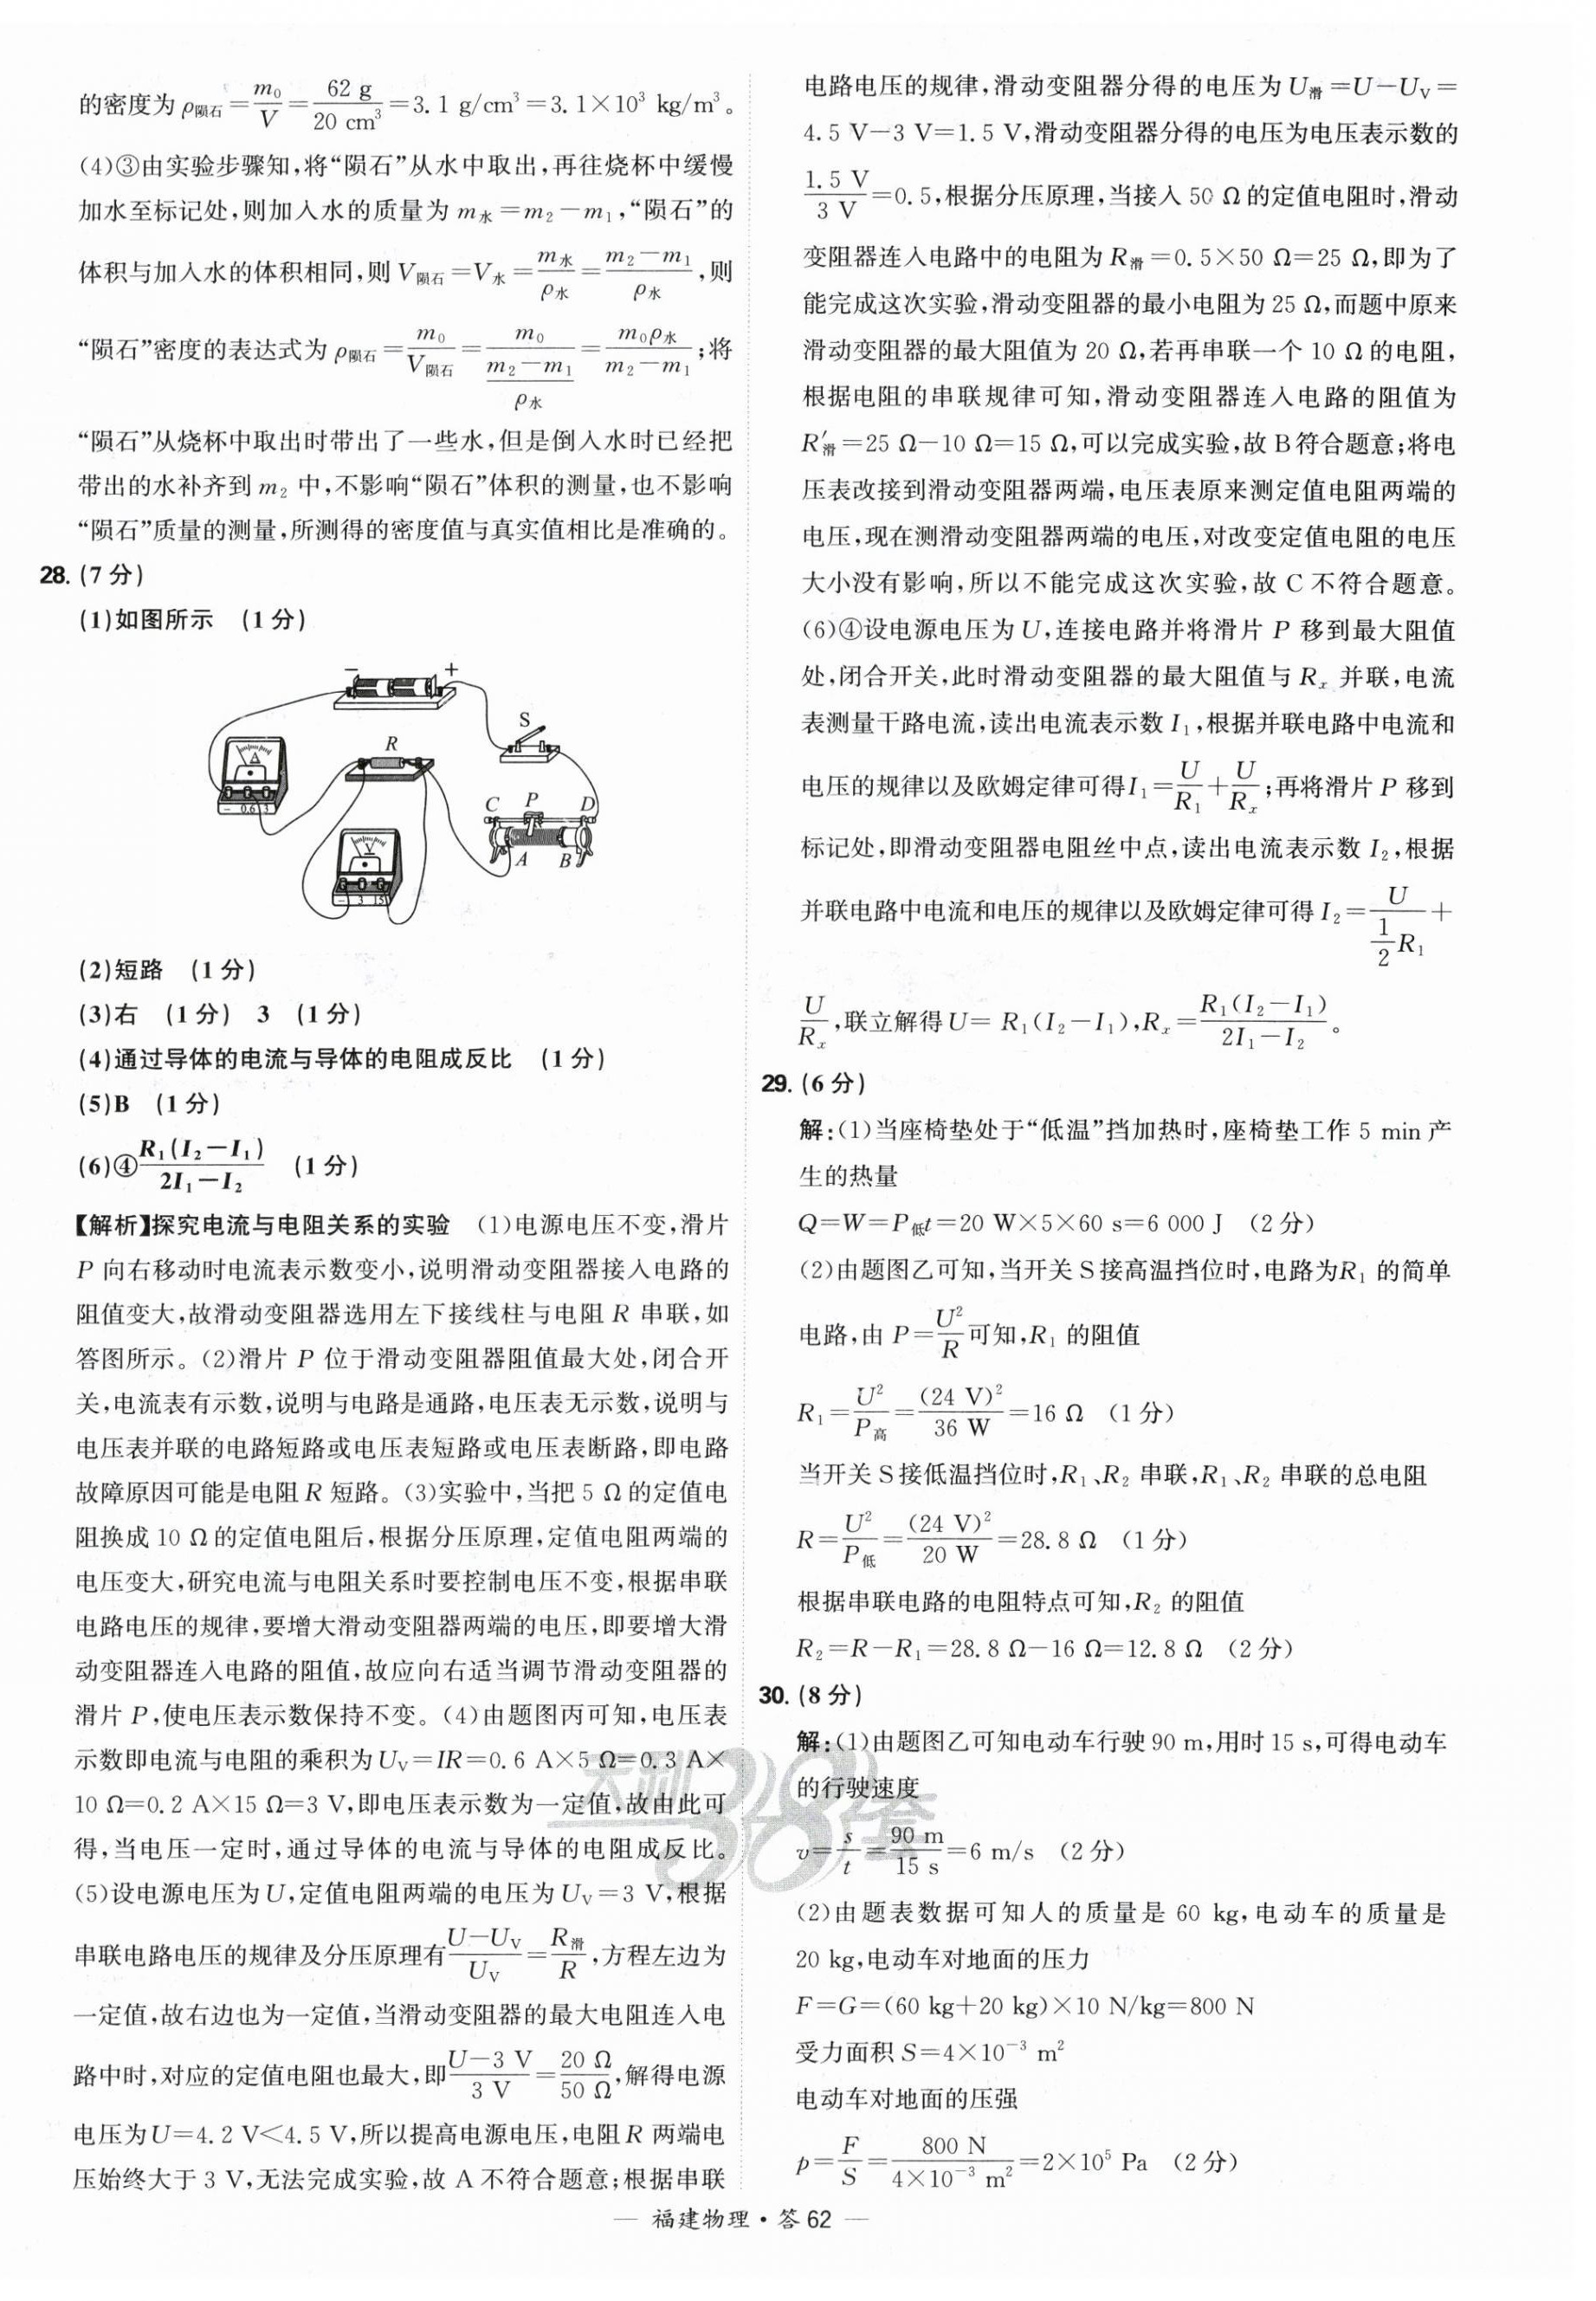 的密度为 ρ陨石 = m₀/V = 62 g/20 cm³ = 3.1 g/cm³ = 3.1×10³ kg/m³。
(4)③由实验步骤知,将“陨石”从水中取出,再往烧杯中缓慢
加水至标记处,则加入水的质量为 m水 = m₂ − m₁,“陨石”的
体积与加入水的体积相同,则 V陨石 = V水 = m水/ρ水 = (m₂−m₁)/ρ水,则
“陨石”密度的表达式为 ρ陨石 = m₀/V陨石 = m₀/((m₂−m₁)/ρ水) = m₀ρ水/(m₂−m₁);将
“陨石”从烧杯中取出时带出了一些水,但是倒入水时已经把
带出的水补齐到 m₂ 中,不影响“陨石”体积的测量,也不影响
“陨石”质量的测量,所测得的密度值与真实值相比是准确的。
28. (7 分)
(1)如图所示 (1 分)
− +
S
R
A
− 0.6 3
C P D
V
A B
− 3 15
(2)短路 (1 分)
(3)右 (1 分) 3 (1 分)
(4)通过导体的电流与导体的电阻成反比 (1 分)
(5)B (1 分)
(6)④ R₁(I₂−I₁)/(2I₁−I₂) (1 分)
【解析】探究电流与电阻关系的实验 (1)电源电压不变,滑片
P 向右移动时电流表示数变小,说明滑动变阻器接入电路的
阻值变大,故滑动变阻器选用左下接线柱与电阻 R 串联,如
答图所示。(2)滑片 P 位于滑动变阻器阻值最大处,闭合开
关,电流表有示数,说明与电路是通路,电压表无示数,说明与
电压表并联的电路短路或电压表短路或电压表断路,即电路
故障原因可能是电阻 R 短路。(3)实验中,当把 5 Ω 的定值电
阻换成 10 Ω 的定值电阻后,根据分压原理,定值电阻两端的
电压变大,研究电流与电阻关系时要控制电压不变,根据串联
电路电压的规律,要增大滑动变阻器两端的电压,即要增大滑
动变阻器连入电路的阻值,故应向右适当调节滑动变阻器的
滑片 P,使电压表示数保持不变。(4)由题图丙可知,电压表
示数即电流与电阻的乘积为 U_V = IR = 0.6 A×5 Ω = 0.3 A×
10 Ω = 0.2 A×15 Ω = 3 V,即电压表示数为一定值,故由此可
得,当电压一定时,通过导体的电流与导体的电阻成反比。
(5)设电源电压为 U,定值电阻两端的电压为 U_V = 3 V,根据
串联电路电压的规律及分压原理有 (U−U_V)/U_V = R滑/R,方程左边为
一定值,故右边也为一定值,当滑动变阻器的最大电阻连入电
路中时,对应的定值电阻也最大,即 (U−3 V)/3 V = 20 Ω/50 Ω,解得电源
电压为 U = 4.2 V<4.5 V,所以提高电源电压,电阻 R 两端电
压始终大于 3 V,无法完成实验,故 A 不符合题意;根据串联
电路电压的规律,滑动变阻器分得的电压为 U滑 = U − U_V =
4.5 V−3 V = 1.5 V,滑动变阻器分得的电压为电压表示数的
1.5 V/3 V = 0.5,根据分压原理,当接入 50 Ω 的定值电阻时,滑动
变阻器连入电路中的电阻为 R滑 = 0.5×50 Ω = 25 Ω,即为了
能完成这次实验,滑动变阻器的最小电阻为 25 Ω,而题中原来
滑动变阻器的最大阻值为 20 Ω,若再串联一个 10 Ω 的电阻,
根据电阻的串联规律可知,滑动变阻器连入电路的阻值为
R′滑 = 25 Ω−10 Ω = 15 Ω,可以完成实验,故 B 符合题意;将电
压表改接到滑动变阻器两端,电压表原来测定值电阻两端的
电压,现在测滑动变阻器两端的电压,对改变定值电阻的电压
大小没有影响,所以不能完成这次实验,故 C 不符合题意。
(6)④设电源电压为 U,连接电路并将滑片 P 移到最大阻值
处,闭合开关,此时滑动变阻器的最大阻值与 Rₓ 并联,电流
表测量干路电流,读出电流表示数 I₁,根据并联电路中电流和
电压的规律以及欧姆定律可得 I₁ = U/R₁ + U/Rₓ;再将滑片 P 移到
标记处,即滑动变阻器电阻丝中点,读出电流表示数 I₂,根据
并联电路中电流和电压的规律以及欧姆定律可得 I₂ = U/(½R₁) +
U/Rₓ,联立解得 U = R₁(I₂−I₁),Rₓ = R₁(I₂−I₁)/(2I₁−I₂)。
29. (6 分)
解:(1)当座椅垫处于“低温”挡加热时,座椅垫工作 5 min 产
生的热量
Q = W = P低t = 20 W×5×60 s = 6 000 J (2 分)
(2)由题图乙可知,当开关 S 接高温挡位时,电路为R₁ 的简单
电路,由 P = U²/R 可知,R₁ 的阻值
R₁ = U²/P高 = (24 V)²/36 W = 16 Ω (1 分)
当开关 S 接低温挡位时,R₁、R₂ 串联,R₁、R₂ 串联的总电阻
R = U²/P低 = (24 V)²/20 W = 28.8 Ω (1 分)
根据串联电路的电阻特点可知,R₂ 的阻值
R₂ = R − R₁ = 28.8 Ω−16 Ω = 12.8 Ω (2 分)
30. (8 分)
解:(1)由题图乙可知电动车行驶 90 m,用时 15 s,可得电动车
的行驶速度
v = s/t = 90 m/15 s = 6 m/s (2 分)
(2)由题表数据可知人的质量是 60 kg,电动车的质量是
20 kg,电动车对地面的压力
F = G = (60 kg+20 kg)×10 N/kg = 800 N
受力面积 S = 4×10⁻³ m²
电动车对地面的压强
p = F/S = 800 N/(4×10⁻³ m²) = 2×10⁵ Pa (2 分)
天利38套
— 福建物理·答 62 —